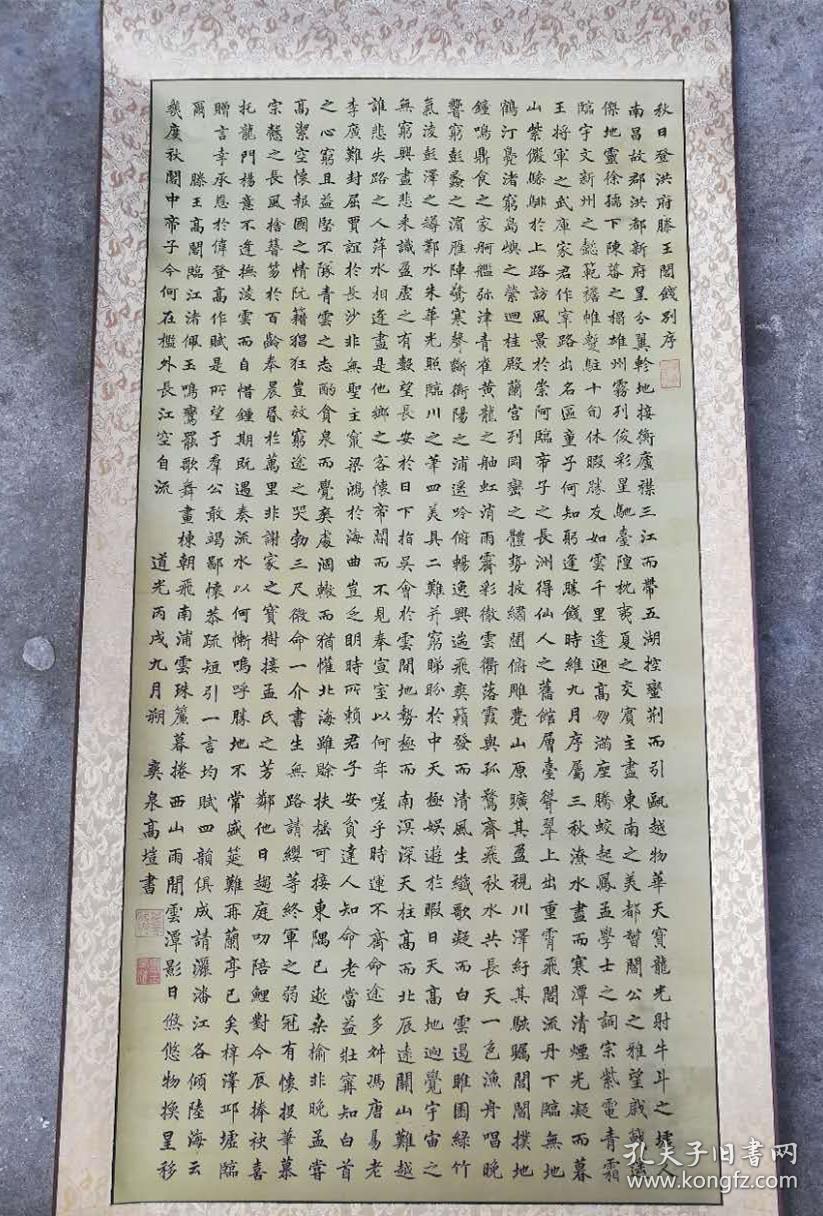 秋日登洪府滕王閣餞別序
南昌故郡洪都新府星分翼軫地接衡廬襟三江而帶五湖控蠻荊而引甌越物華天寶龍光射牛斗之墟人
傑地靈徐孺下陳蕃之榻雄州霧列俊彩星馳臺隍枕夷夏之交賓主盡東南之美都督閻公之雅望棨戟遙
臨宇文新州之懿範襜帷蹔駐十旬休暇勝友如雲千里逢迎高朋滿座騰蛟起鳳孟學士之詞宗紫電青霜
王將軍之武庫家君作宰路出名區童子何知躬逢勝餞時維九月序屬三秋潦水盡而寒潭清煙光凝而暮
山紫儼驂騑於上路訪風景於崇阿臨帝子之長洲得仙人之舊館層臺聳翠上出重霄飛閣流丹下臨無地
鶴汀鳧渚窮島嶼之縈迴桂殿蘭宮列岡巒之體勢披繡闥俯雕甍山原曠其盈視川澤紆其駭矚閭閻撲地
鍾鳴鼎食之家舸艦弥津青雀黃龍之舳虹消雨霽彩徹雲衢落霞與孤鶩齊飛秋水共長天一色漁舟唱晚
響窮彭蠡之濱雁陣驚寒聲斷衡陽之浦遙吟俯暢逸興遄飛爽籟發而清風生纖歌凝而白雲遏睢園綠竹
氣淩彭澤之罇鄴水朱華光照臨川之筆四美具二難并窮睇眄於中天極娛遊於暇日天高地迥覺宇宙之
無窮興盡悲來識盈虛之有數望長安於日下指吳會於雲間地勢極而南溟深天柱高而北辰遠關山難越
誰悲失路之人萍水相逢盡是他鄉之客懷帝閽而不見奉宣室以何年嗟乎時運不齊命途多舛馮唐易老
李廣難封屈賈誼於長沙非無聖主竄梁鴻於海曲豈乏明時所賴君子安貧達人知命老當益壯甯知白首
之心窮且益堅不隊青雲之志酌貪泉而覺爽處涸轍而猶懽北海雖賒扶搖可接東隅已逝桑榆非晚孟嘗
高潔空懷報國之情阮籍猖狂豈效窮途之哭勃三尺微命一介書生無路請纓等終軍之弱冠有懷投筆慕
宗愨之長風捨簪笏於百齡奉晨昏於萬里非謝家之寶樹接孟氏之芳鄰他日趨庭叨陪鯉對今辰捧袂喜
托龍門楊意不逢撫淩雲而自惜鍾期既遇奏流水以何慚嗚呼勝地不常盛筵難再蘭亭已矣梓澤邱墟臨
贈言幸承恩於偉登高作賦是所望于羣公敢竭鄙懷恭疏短引一言均賦四韻俱成請灑潘江各傾陸海云
爾 滕王高閣臨江渚佩玉鳴鸞罷歌舞畫棟朝飛南浦雲珠簾暮捲西山雨閒雲潭影日悠悠物換星移
幾度秋閣中帝子今何在檻外長江空自流 道光丙戌九月朔 爽泉高塏書
孔夫子旧书网
www.kongfz.com